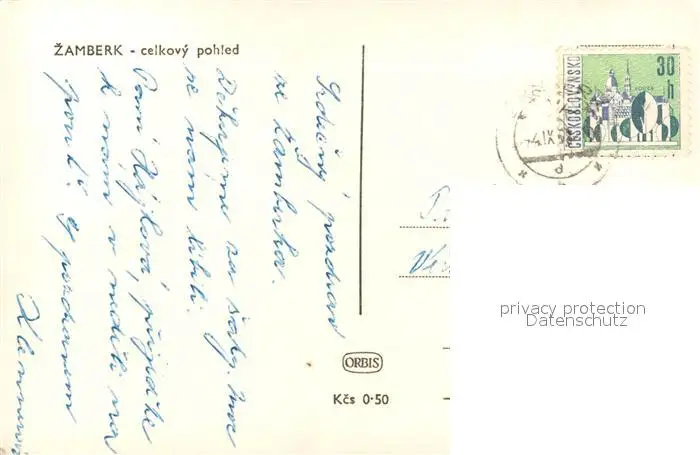 ŽAMBERK - celkový pohled
Srdečný pozdrav
ze Žamberka.
Děkujeme za šaty. Moc
se nám líbili.
Paní Hájková, přijďte
k námi v neděli na
pouť. S pozdravem
ČESKOSLOVENSKO
30 h
4.IX
ORBIS
Kčs 0·50
privacy protection
Datenschutz